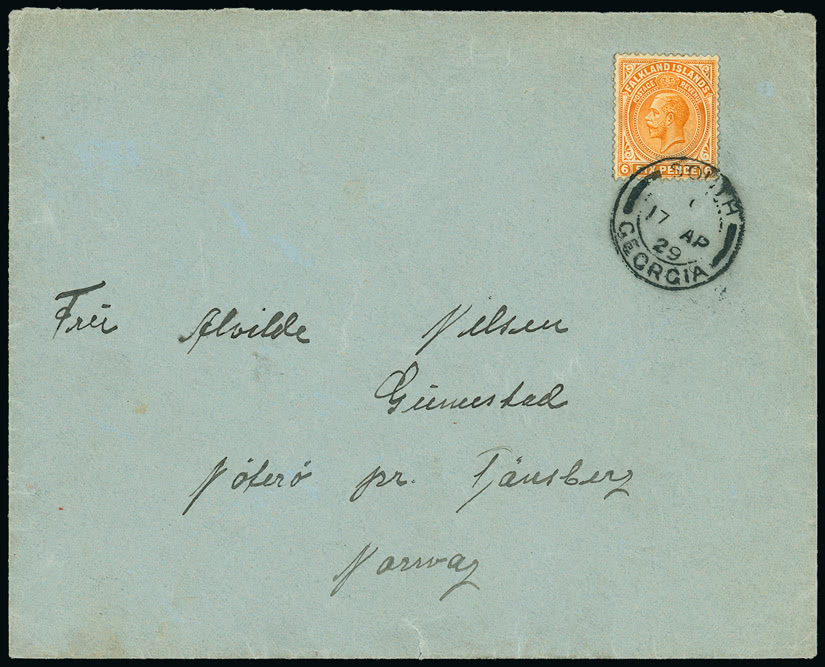 FALKLAND ISLANDS
POSTAGE REVENUE
6 SIX PENCE 6
SOUTH
17 AP
29
GEORGIA
Frü Alvilde Nilsen
Nöterö pr. Tänsberg
Norway